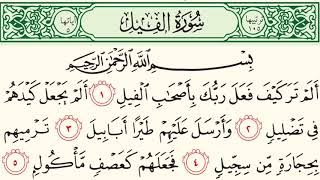 سُورَةُ الْفِيلِ
بِسْمِ اللَّهِ الرَّحْمَٰنِ الرَّحِيمِ
أَلَمْ تَرَ كَيْفَ فَعَلَ رَبُّكَ بِأَصْحَابِ الْفِيلِ ١ أَلَمْ يَجْعَلْ كَيْدَهُمْ
فِي تَضْلِيلٍ ٢ وَأَرْسَلَ عَلَيْهِمْ طَيْرًا أَبَابِيلَ ٣ تَرْمِيهِمْ
بِحِجَارَةٍ مِّن سِجِّيلٍ ٤ فَجَعَلَهُمْ كَعَصْفٍ مَّأْكُولٍ ٥